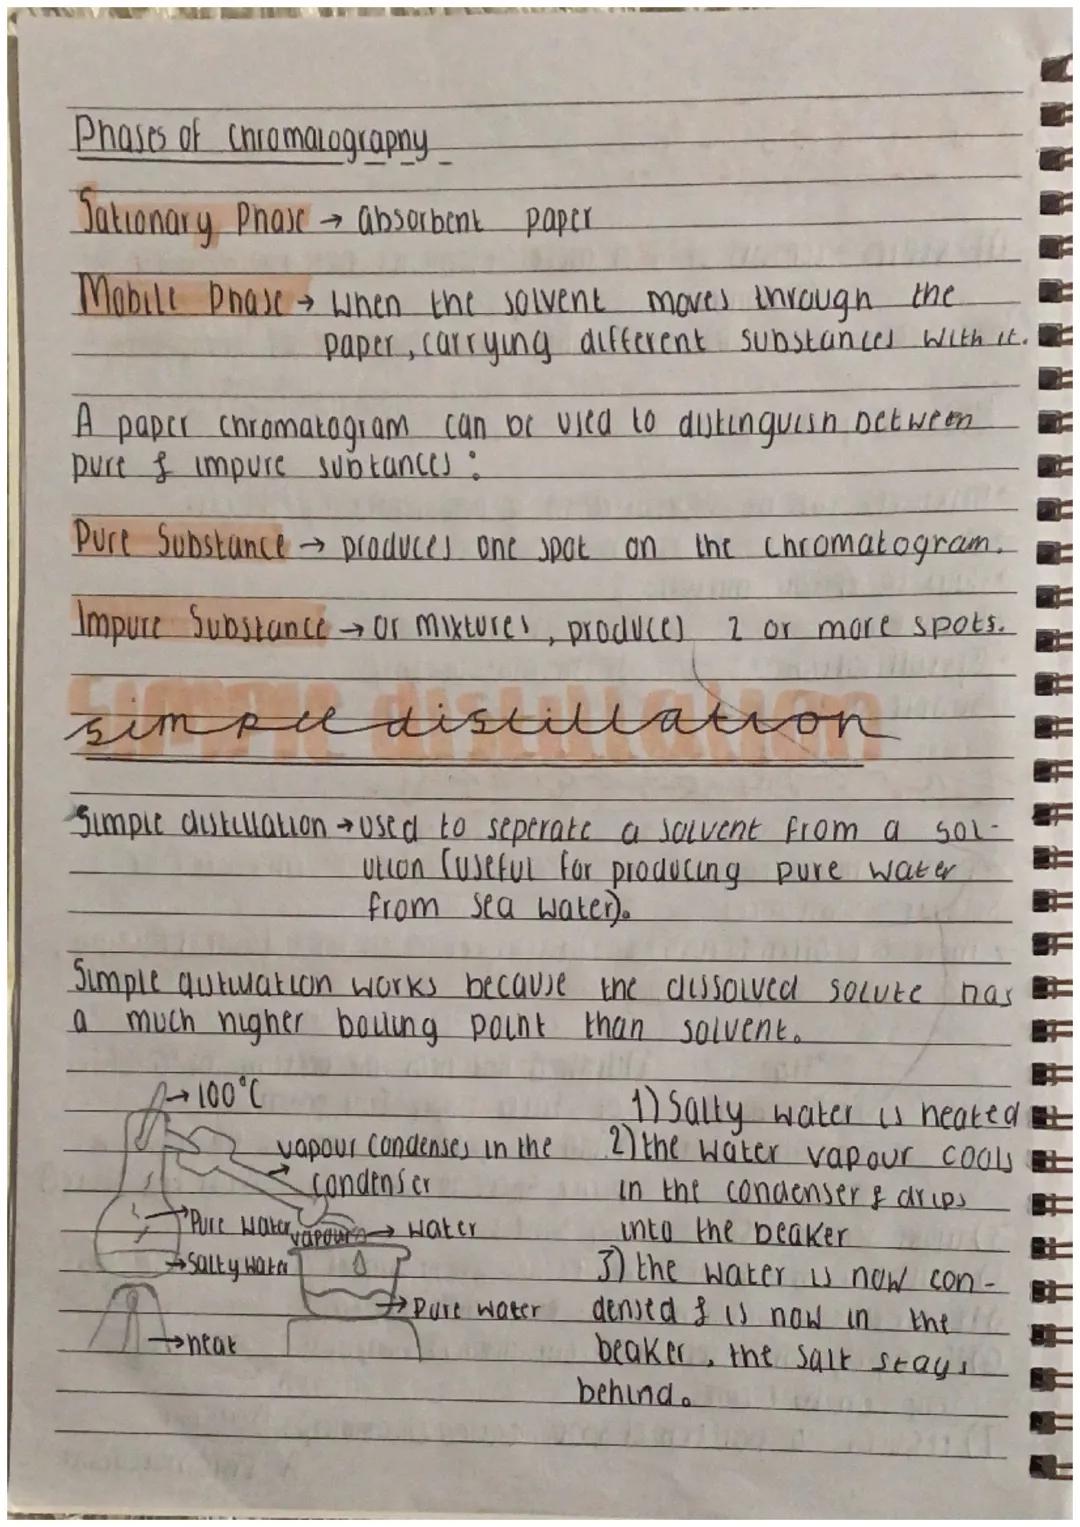 Phases of chromatography
Sationary Phase → absorbent paper
Mobile Phase → When the solvent moves through the
paper, carrying different substances with it.
A paper chromatogram can be used to distinguish between
pure & impure subtances :
Pure Substance → produces one spot on the chromatogram.
Impure Substance → or mixtures, produces 2 or more spots.
simple distillation
Simple distillation → used to seperate a solvent from a sol-
ution (useful for producing pure water
from sea water).
Simple distillation works because the dissolved solute has
a much higher boiling point than solvent.
→ 100°C
vapour condenses in the
condenser
→ Pure water
vapour
→ water
→ Salty water
→ Pure water
→ heat
1) Salty water is heated
2) the water vapour cools
in the condenser & drips
into the beaker
3) the water is now con-
densed & is now in the
beaker, the salt stays
behind.